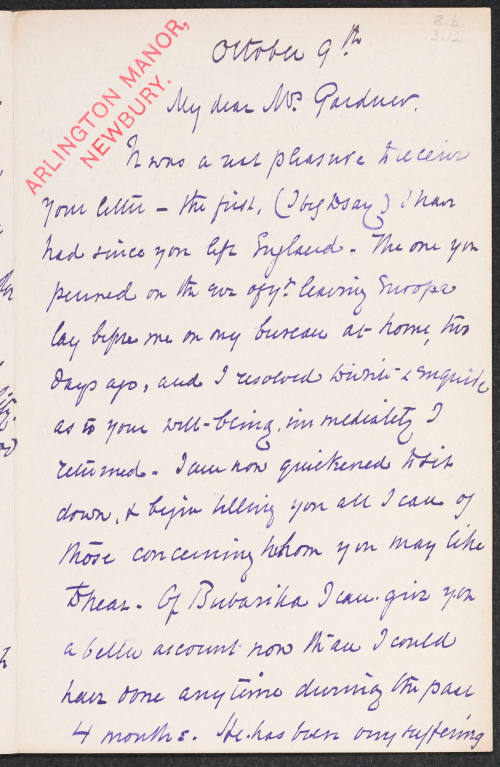 8.6
3.12
ARLINGTON MANOR,
NEWBURY.
October 9th
My dear Mrs Gardner.
It was a real pleasure to receive
your letter – the first, (I beg to say) I have
had since you left England – The one you
penned on the eve of yr leaving Europe
lay before me on my bureau at home, two
days ago, and I resolved to write & enquire
as to your well-being, immediately I
returned – I am now quickened to sit
down, & begin telling you all I can of
those concerning whom you may like
to hear – Of Bubasika I can give you
a better account now than I could
have done anytime during the past
4 months. He has been very suffering